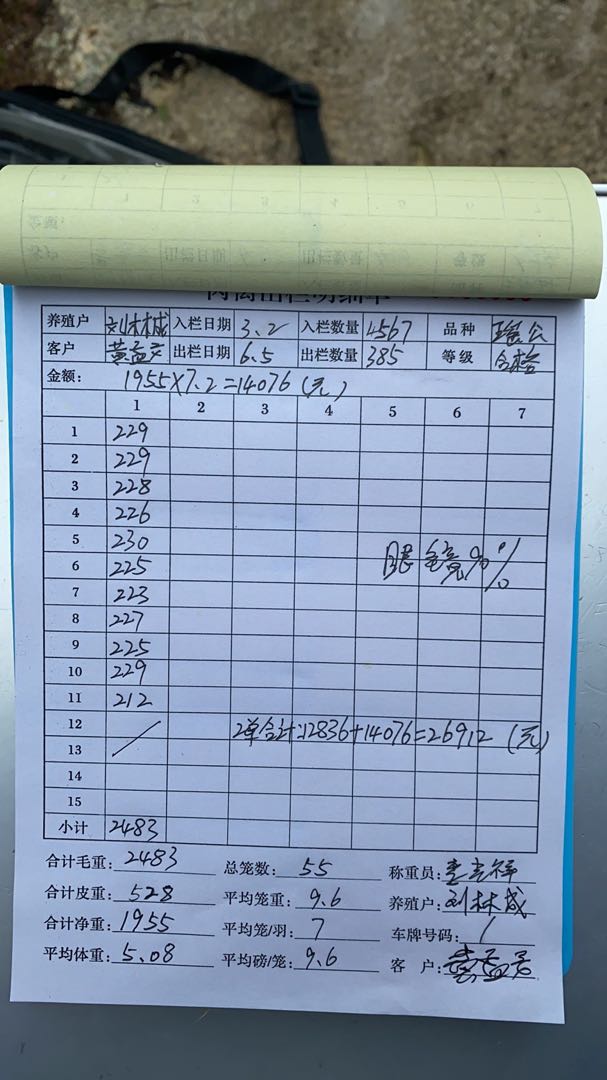 养殖户 刘林城 入栏日期 3.2 入栏数量 4567 品种 瑶公
客户 黄益 出栏日期 6.5 出栏数量 385 等级 合格
金额: 1955×7.2=14076 (元)
1 2 3 4 5 6 7
1 229
2 229
3 228
4 226
5 230
6 225
7 223
8 227
9 225
10 229
11 212
12
13
14
15
小计 2483
眼 亮90%
2单合计:12836+14076=26912 (元)
合计毛重: 2483 总笼数: 55 称重员:
合计皮重: 528 平均笼重: 9.6 养殖户: 刘林成
合计净重: 1955 平均笼/羽: 7 车牌号码: /
平均体重: 5.08 平均磅/笼: 9.6 客 户: